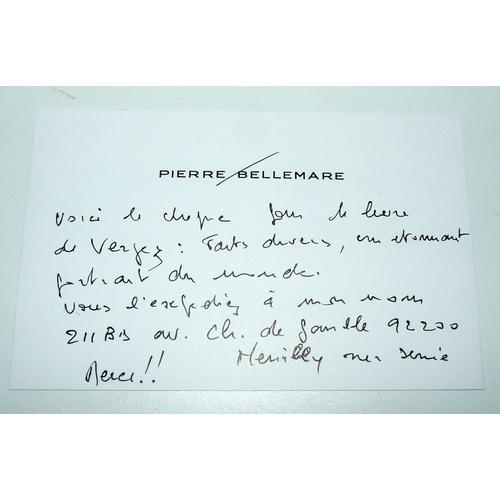 PIERRE BELLEMARE
Voici le cheque pour le livre
de Verges : Faits divers, un etonnant
portrait du monde.
Vous l'expediez à mon nom
211 Bis av. Ch. de Gaulle 92200
Neuilly sur Seine
Merci!!